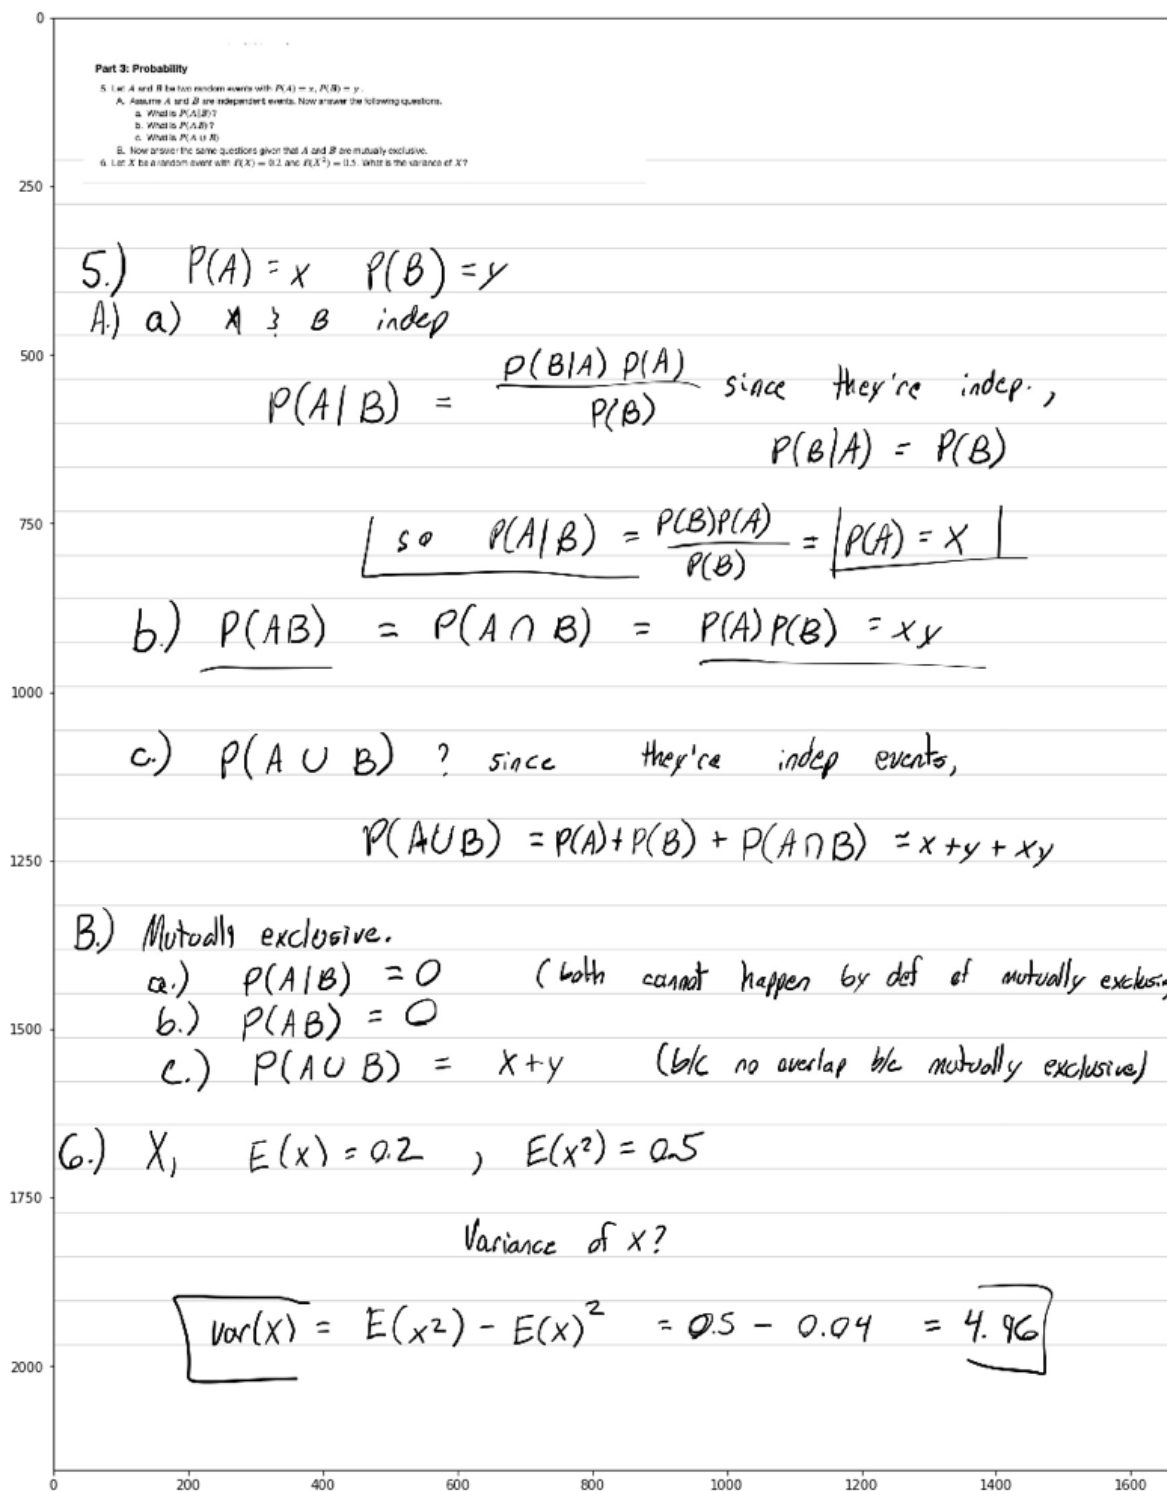 0
Part 3: Probability
5. Let A and B be two random events with P(A) = x, P(B) = y.
A. Assume A and B are independent events. Now answer the following questions.
a. What is P(A|B)?
b. What is P(AB)?
c. What is P(A ∪ B)
B. Now answer the same questions given that A and B are mutually exclusive.
6. Let X be a random event with E(X) = 0.2 and E(X²) = 0.5. What is the variance of X?
250
5.) P(A) = x P(B) = y
A.) a) A & B indep
500
P(A|B) = P(B|A) P(A) / P(B) since they're indep.,
P(B|A) = P(B)
750
so P(A|B) = P(B)P(A) / P(B) = P(A) = x
b.) P(AB) = P(A ∩ B) = P(A)P(B) = xy
1000
c.) P(A ∪ B) ? since they're indep events,
P(A∪B) = P(A)+P(B) + P(A∩B) = x+y + xy
1250
B.) Mutually exclusive.
a.) P(A|B) = 0 (both cannot happen by def of mutually exclusi
b.) P(AB) = 0
1500
c.) P(A ∪ B) = x+y (b/c no overlap b/c mutually exclusive)
6.) X, E(x) = 0.2 , E(x²) = 0.5
1750
Variance of x?
var(x) = E(x²) - E(x)² = 0.5 - 0.04 = 4.96
2000
0 200 400 600 800 1000 1200 1400 1600